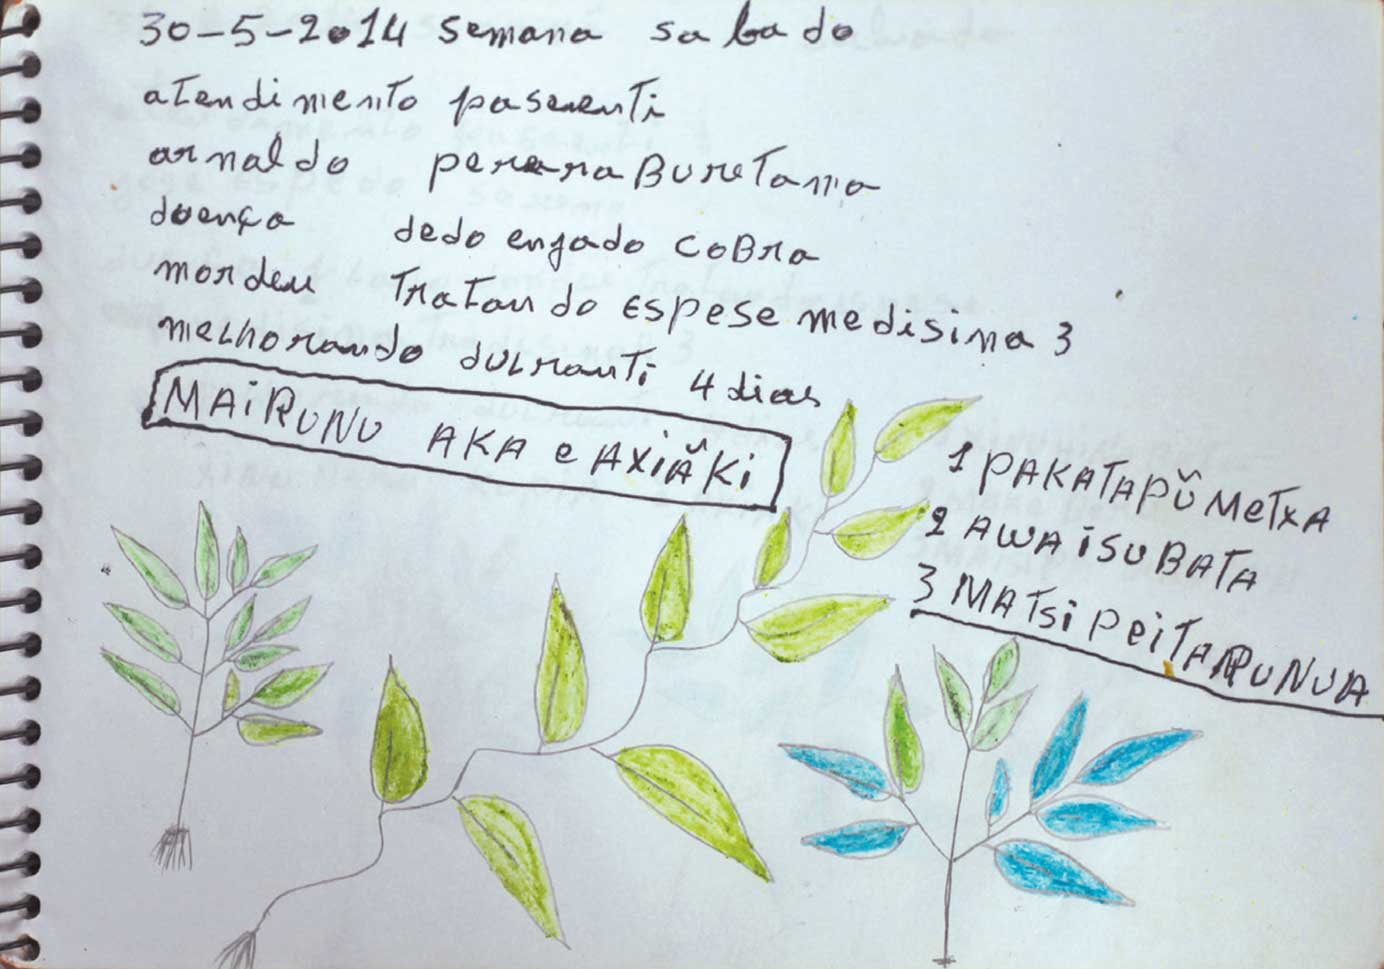 30-5-2014 semana sabado
atendimento pasenti
arnaldo perera Buretama
doença dedo enjado COBRA
mordeu TRaTando ESPESE medisina 3
melhorando dulranti 4 dias
MAiRUNU AKA e AXiÃKi
1 PAKATAPŬ MeTXA
2 AWA iSUBATA
3 MATSi PeiTA RUNUA